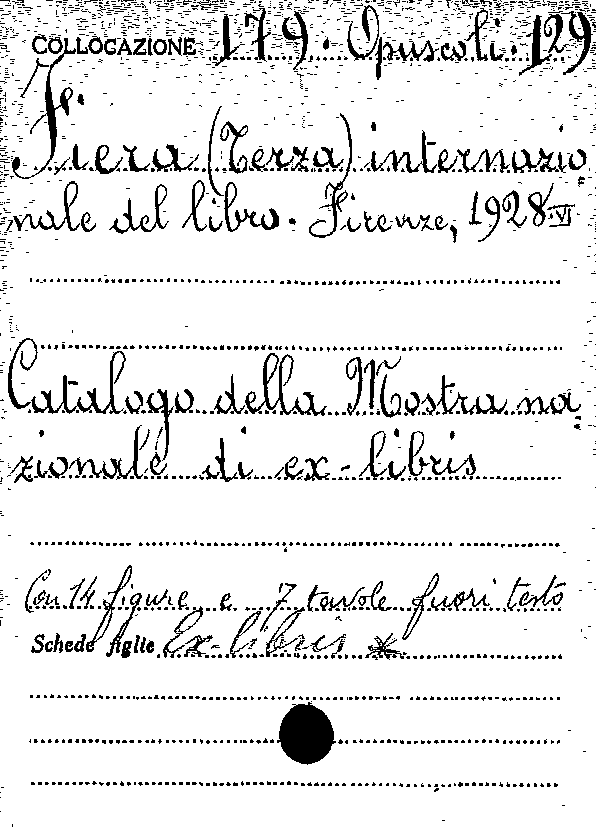 COLLOCAZIONE 179. Opuscoli. 129
Fiera (Terza) internazio=
nale del libro. Firenze, 1928.VI
Catalogo della Mostra na=
zionale di ex-libris
Con 14 figure e 7 tavole fuori testo
Schede figlie Ex-libris *